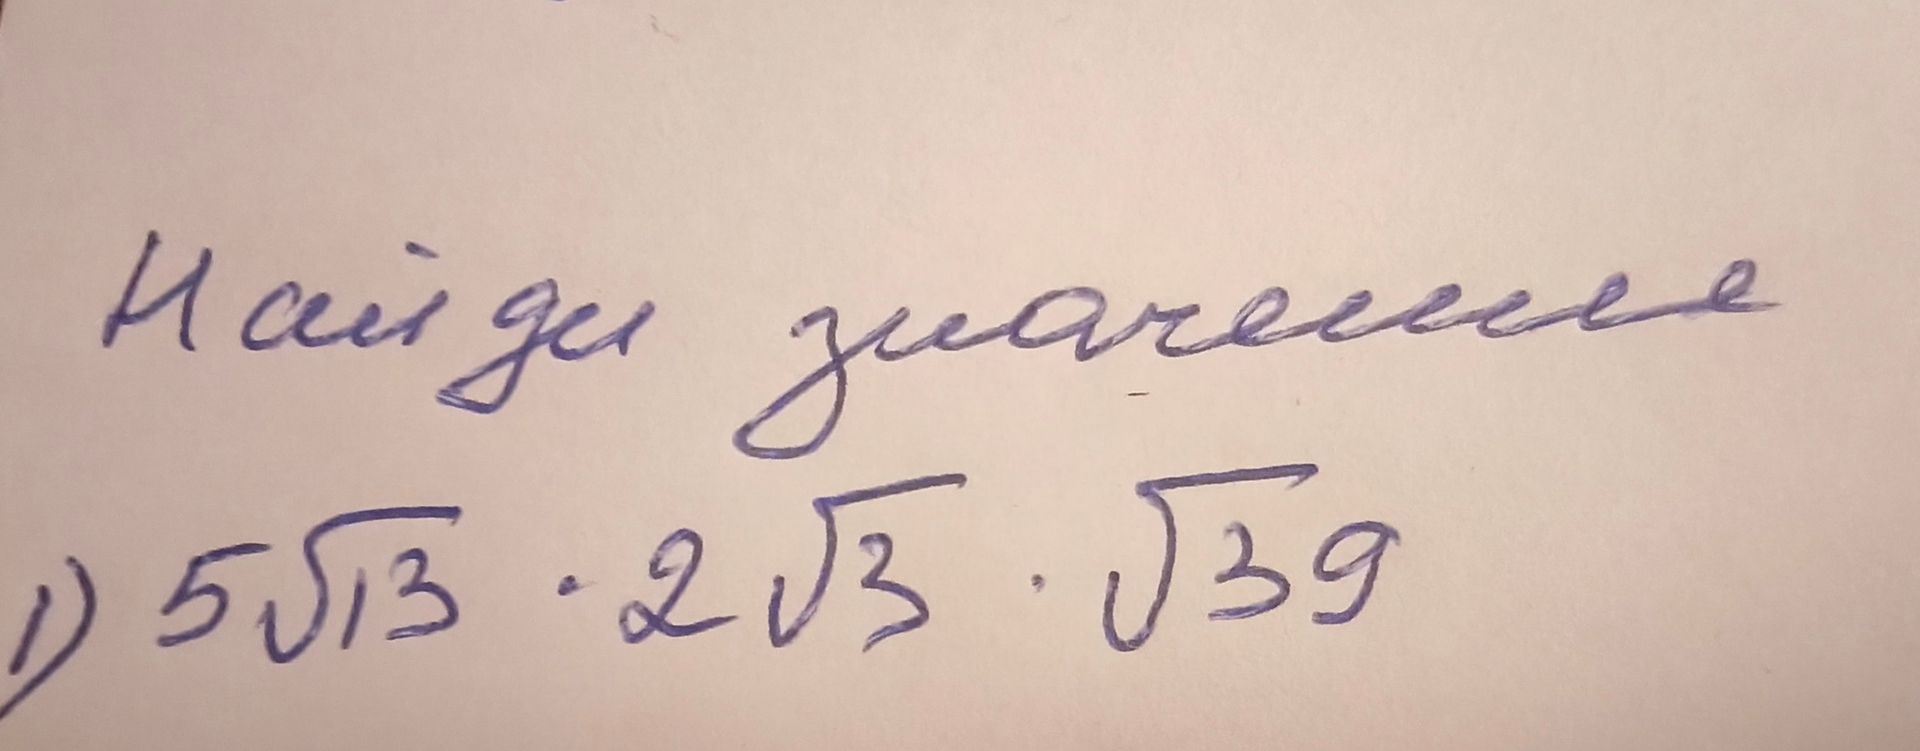 Найди значение
1) 5√13 · 2√3 · √39